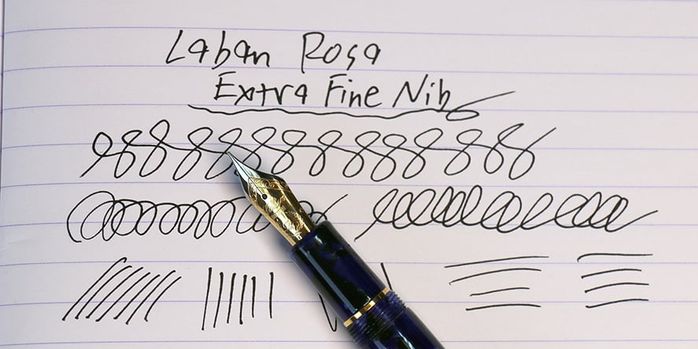 Laban Rosa
Extra Fine Nib